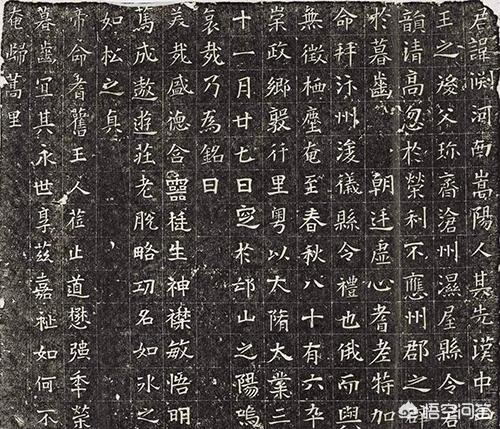 君諱渊河西嵩陽人其先漢中山
王之後父珎齊滄州濕屋縣令君
韻清髙忽於榮利不應州郡之
於暮齒 朝廷虛心耆老特加
命拜汴州浚儀縣令禮也俄而與
無徵栖塵奄至春秋八十有六卒
崇政鄉敦行里粵以大隋大業三
十一月廿七日窆於邙山之陽嗚
哀哉乃為銘曰
美哉盛德含器挺生神襟敏悟明
篤成遨遊莊老脫略功名如冰之
如松之真
帝命耆舊王人莅止道懋强年榮
暮齒宜其永世享茲嘉祉如何不
奄歸蒿里
悟空问答